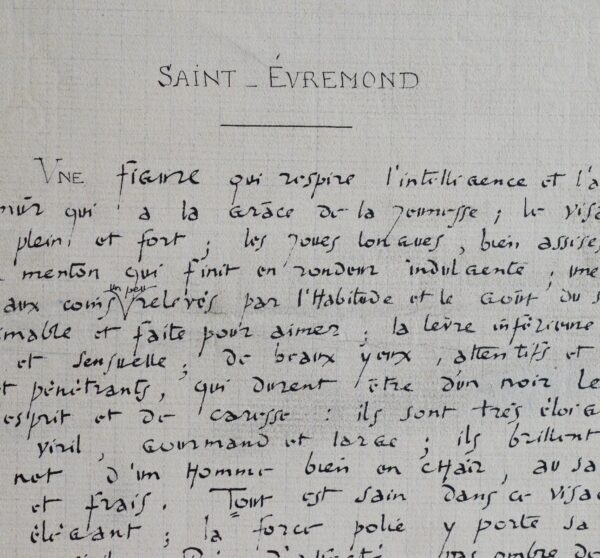 SAINT-ÉVREMOND
UNE figure qui respire l'intelligence et l'a
mûr qui a la grâce de la jeunesse ; le visa
plein et fort ; les joues longues, bien assises
menton qui finit en rondeur indulgente ; une
aux coins un peu relevés par l'habitude et le goût du s
imable et faite pour aimer ; la lèvre inférieure
et sensuelle ; de beaux yeux, attentifs et
et pénétrants, qui durent être d'un noir
esprit et de caresse : ils sont très éloig
viril, gourmand et large ; ils brillent
net d'un homme bien en chair, au sa
et frais. Tout est sain dans ce visa
élégant ; la force polie y porte sa